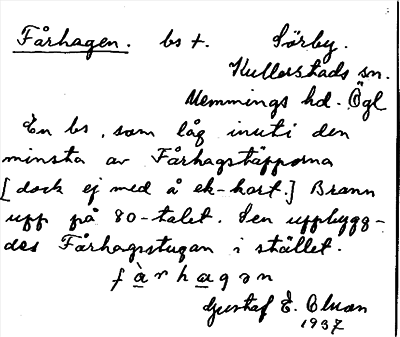 Fårhagen. bs †. Sörby.
Kullerstads sn.
Memmings hd. Ögl
En bs, som låg inuti den
minsta av Fårhagstäpporna
[dock ej med å ek-kart.] Brann
upp på 80-talet. Sen uppbygg-
des Fårhagsstugan i stället.
fàrhagən
Gustaf E. Olson
1937